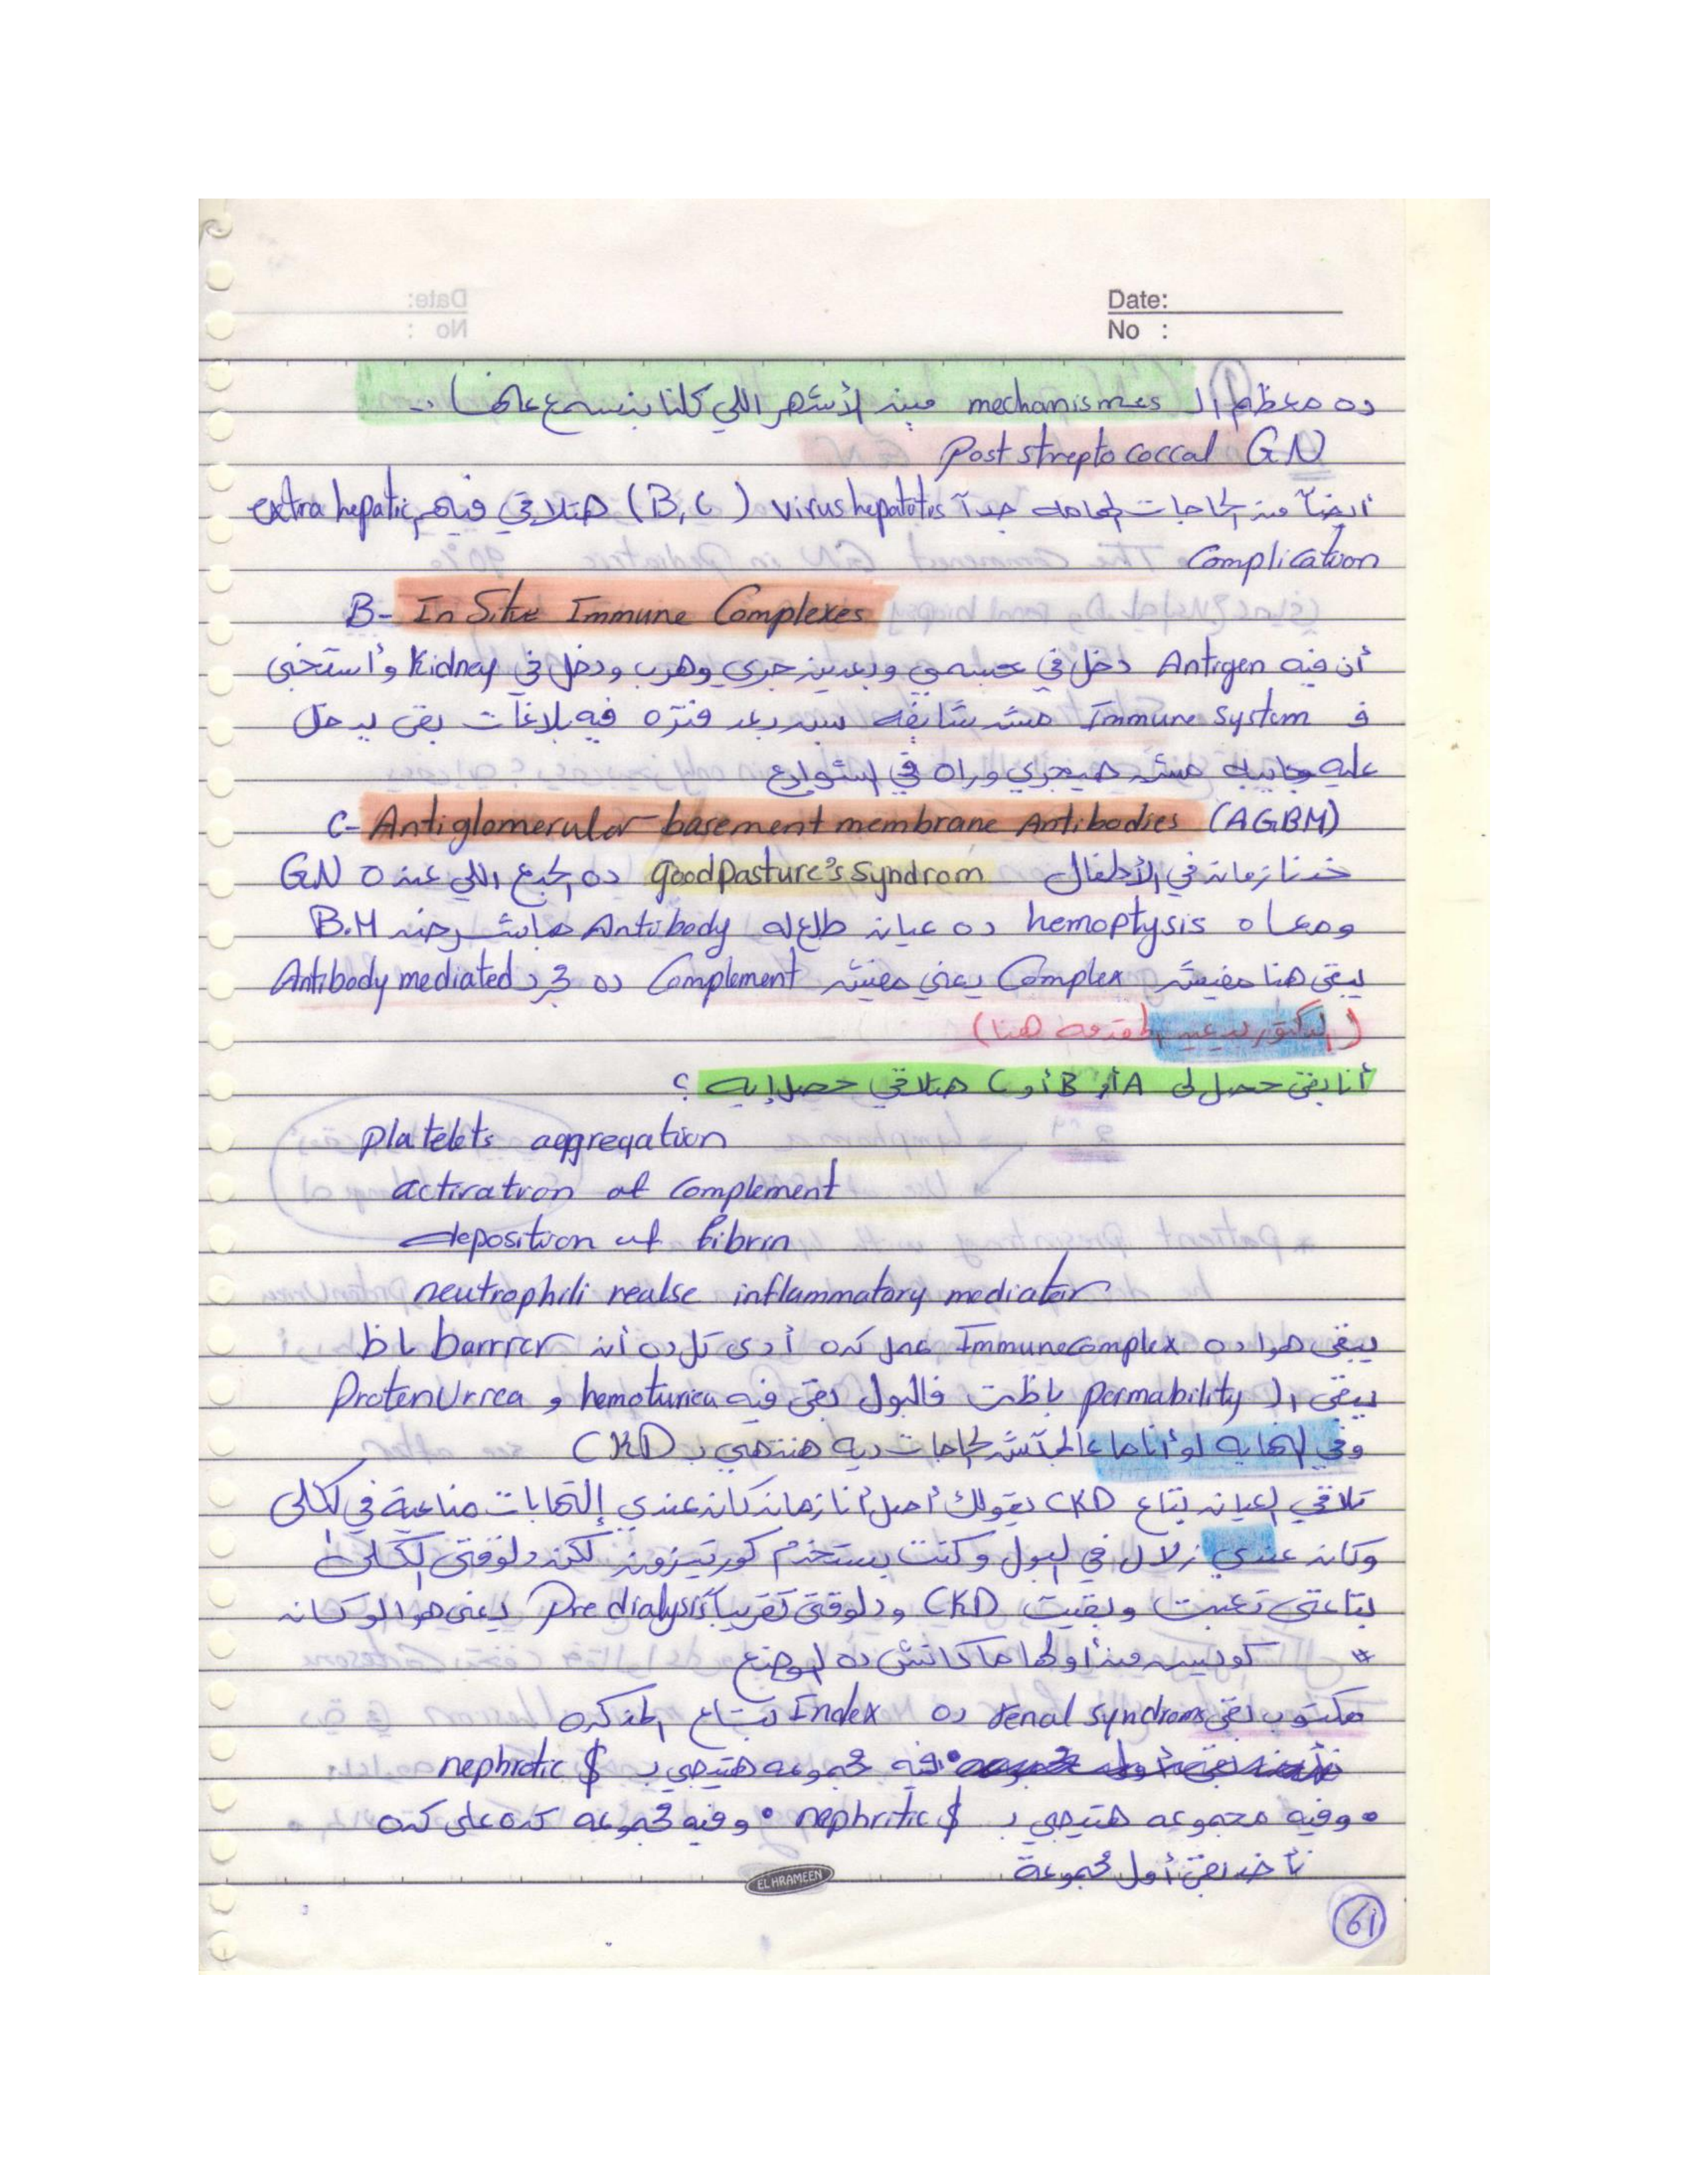 Date:
No :
ده معظم ال mechanismes مين الأشهر اللي كلنا بنسمع عنها ..
Post strepto coccal GN
أيضاً من الحاجات الهامه جداً virus hepatotis (B, C) هتلاقي فيهم extra hepatic
Complication
B- In Situ Immune Complexes
أن فيه Antigen دخل في جسمي وبعدين جري وهرب ودخل في Kidney وأستخبى
ف Immune system مش شايفه بس بعد فتره فيه بلاغات بقى يدخل
عليه مش هيجري وراه في الشوارع
C- Antiglomerular basement membrane Antibodies (AGBM)
خدنا زمان في الأطفال goodpasture's syndrom ده الجدع اللي عنده GN
ومعاه hemoptysis ده عيان طلع له Antibody هاش B.M
يبقى هنا مفيش Complex يعني مفيش Complement ده مجرد Antibody mediated
( الدكتور المقدمه هنا)
أنا بقى حصل لى A أو B أو C هتلاقي حصل إيه ؟
platelets aggregation
activation of complement
deposition of fibrin
neutrophili realse inflammatory mediator
يبقى هوا ده Immunecomplex عمل كده أدى كل ده أن barrier باظ
يبقى ال permability باظت فالبول بقى فيه hemoturiea و ProtenUrrea
وفي النهايه لو أنا ما عالجتش الحاجات ديه هنتهي ب CKD
تلاقي العيان بتاع CKD يقولك أصل أنا زمان كان عندي إلتهابات مناعية في الكلى
وكان عندي زلال في البول وكنت بستخدم كورتيزون لكن دلوقتى الكلى
بتاعتى تعبت وبقيت CKD ودلوقتى تقريباً Pre dialysis يعنى هوا لو كان
* كويس من أولها ما كانش ده الوضع
مكتوب بقى renal syndroms ده Index بتاع المذكره
فيه مجموعه هتيجي ب nephrotic $
• وفيه مجموعه هتيجي ب nephritic $ • وفيه مجموعه كده على كده
نأخد بقى أول مجموعة
EL HRAMEEN
61